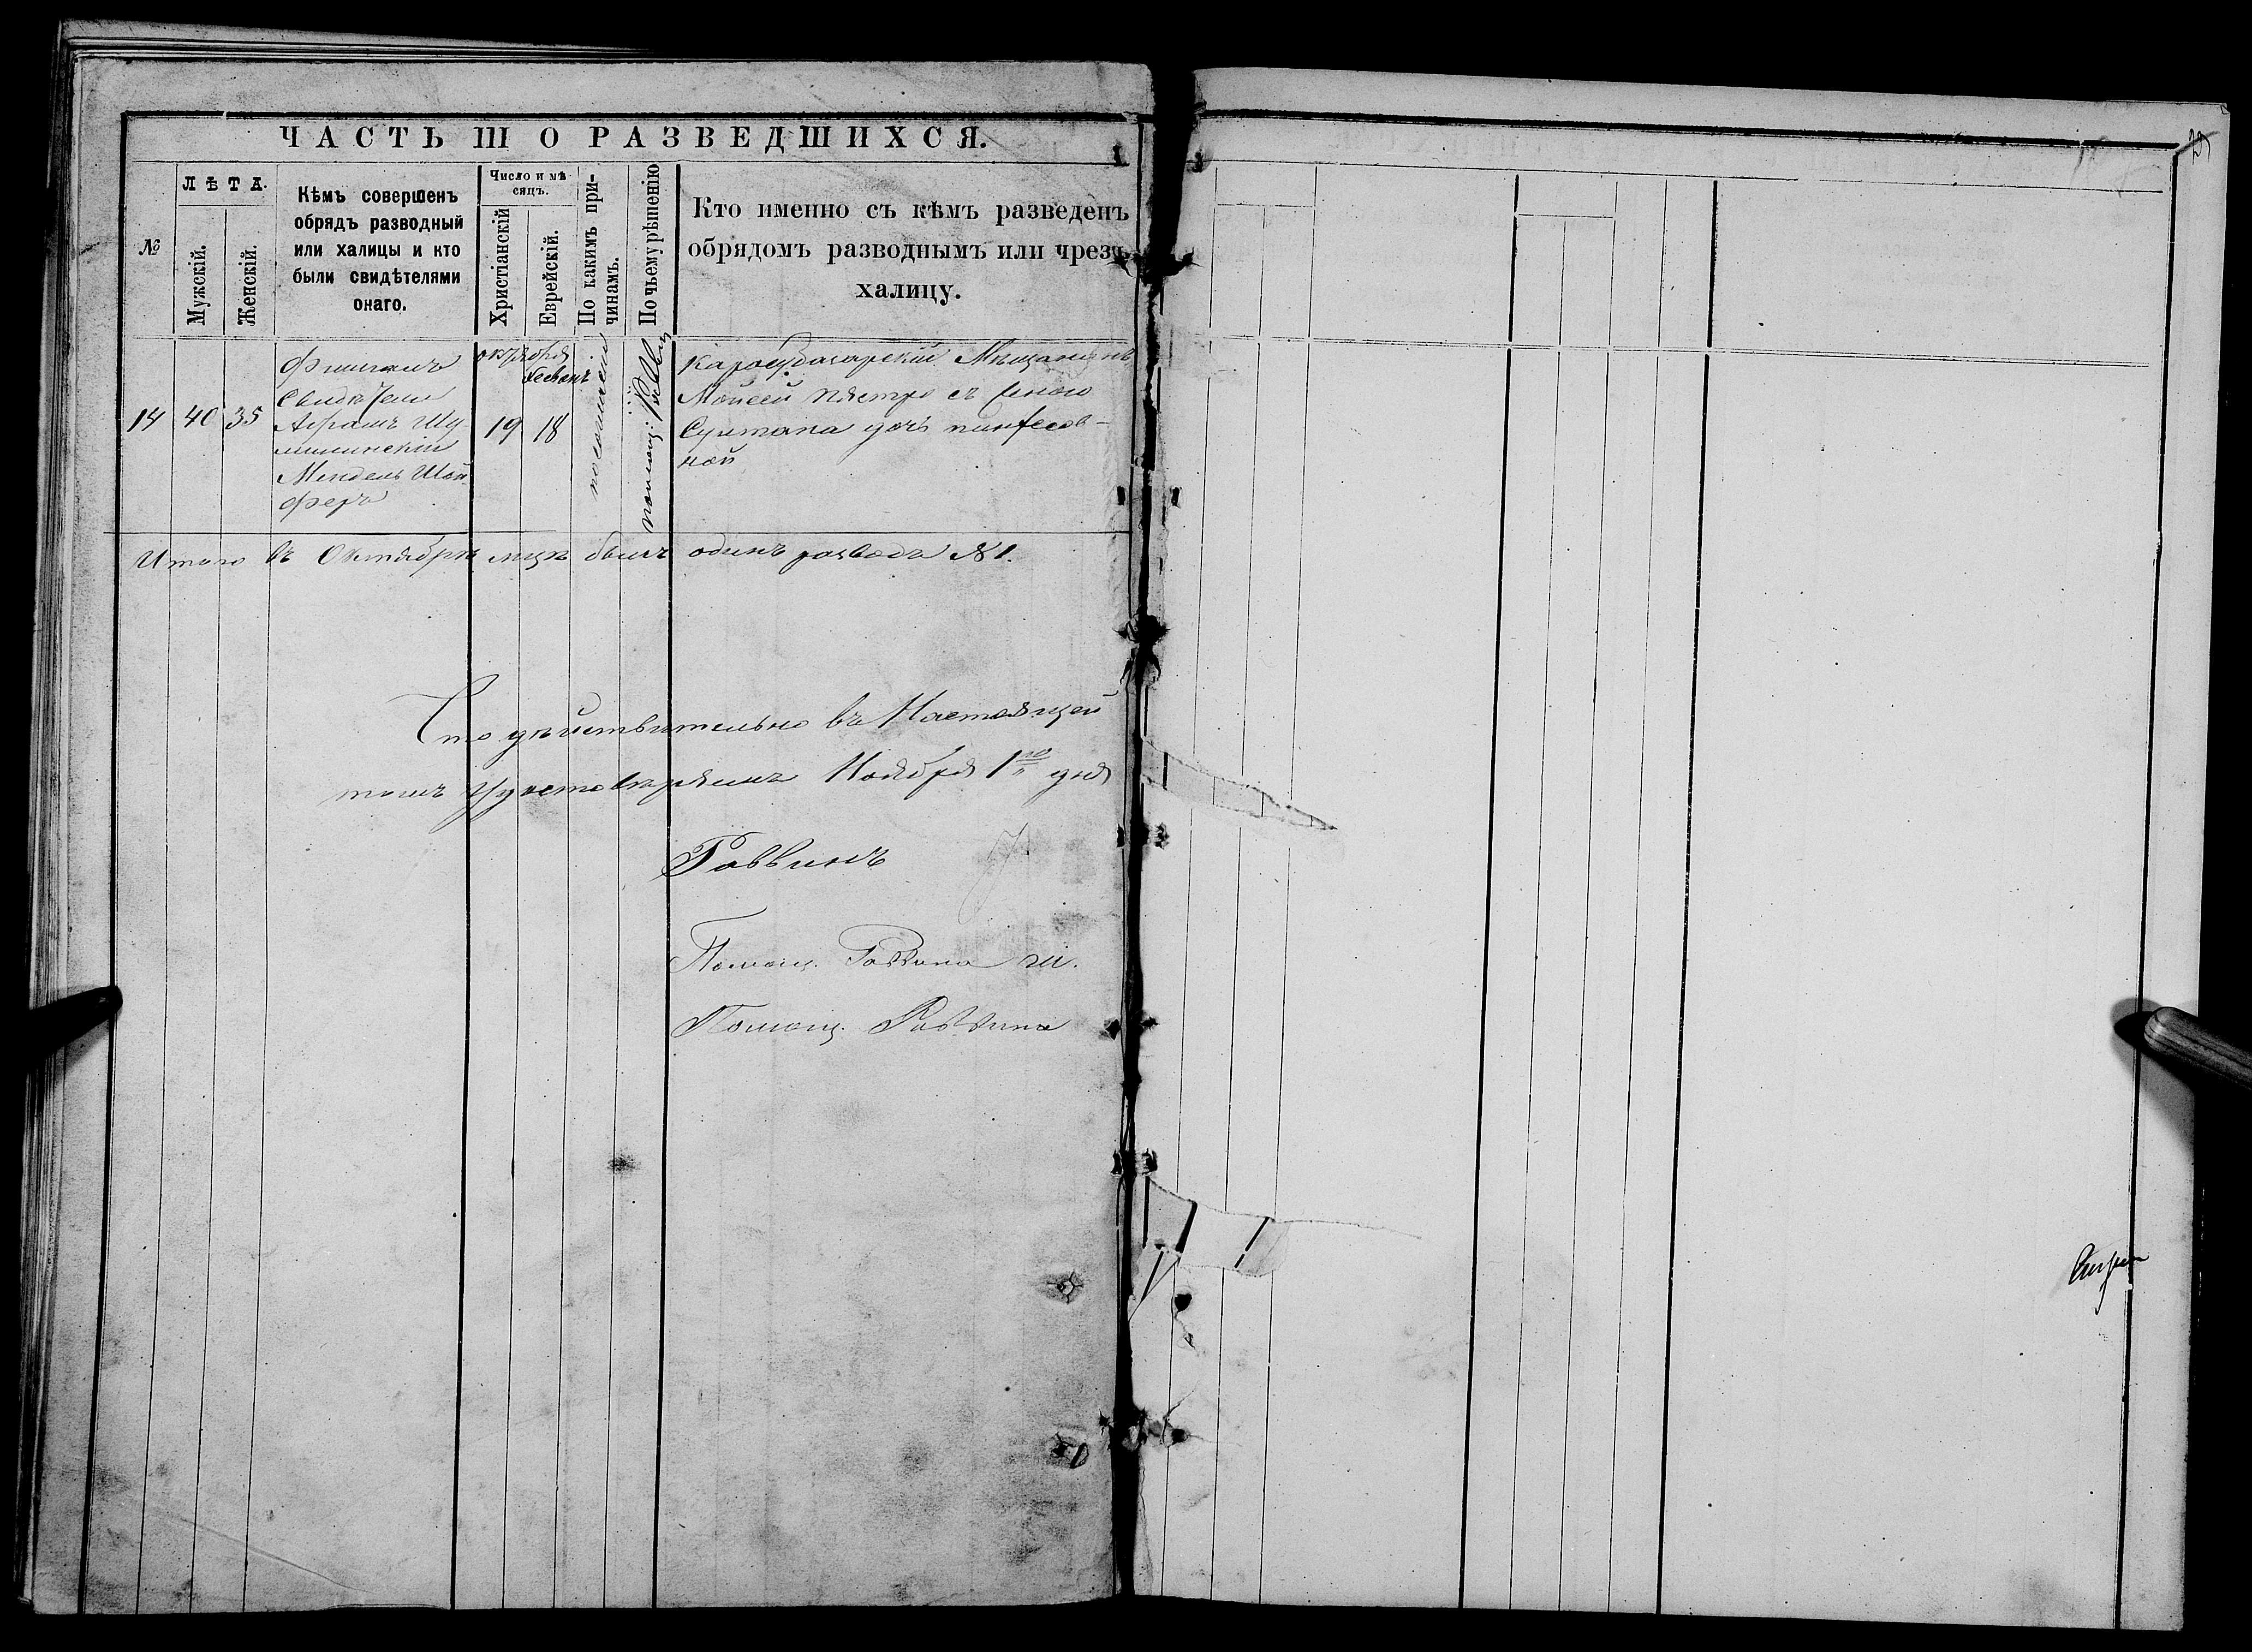 ЧАСТЬ III О РАЗВЕДШИХСЯ.
№
ЛѢТА.
Мужскій.
Женскій.
Кѣмъ совершенъ
обрядъ разводный
или халицы и кто
были свидѣтелями
онаго.
Число и мѣ-
сяцъ.
Христіанскій
Еврейскій.
По какимъ при-
чинамъ.
По чьему рѣшенію
Кто именно съ кѣмъ разведенъ
обрядомъ разводнымъ или чрезъ
халицу.
14
40
35
Фишманъ
Свидѣтели
Абрамъ Шу-
Мендель Шай
феръ
октября
Хесванъ
19
18
помощ: Раввин
Мѣщанинъ
Моисей Пястро съ женою
Султана дочь пинхесов-
ной
Итого въ Октябрѣ мцѣ былъ одинъ разводъ №1.
Что дѣйствительно въ Настоящей
томъ удостовѣряемъ Ноября 1го дня
Раввинъ
Помощ. Раввина
Помощ. Раввина